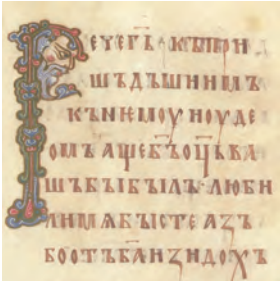 РЕЧЕ Г҃Ь · КЪ ПРИ
ШЪДЪШИИМЪ
КЪ НЕМОУ ИОУДЕ
ОМЪ АЩЕ Б҃Ъ ОЦ҃Ь ВА
ШЬ БЪІ БЪІЛЪ ЛЮБИ
ЛИ МѦ БЪІСТЕ АЗЪ
БО ОТЪ Б҃А ИЗИДОХЪ